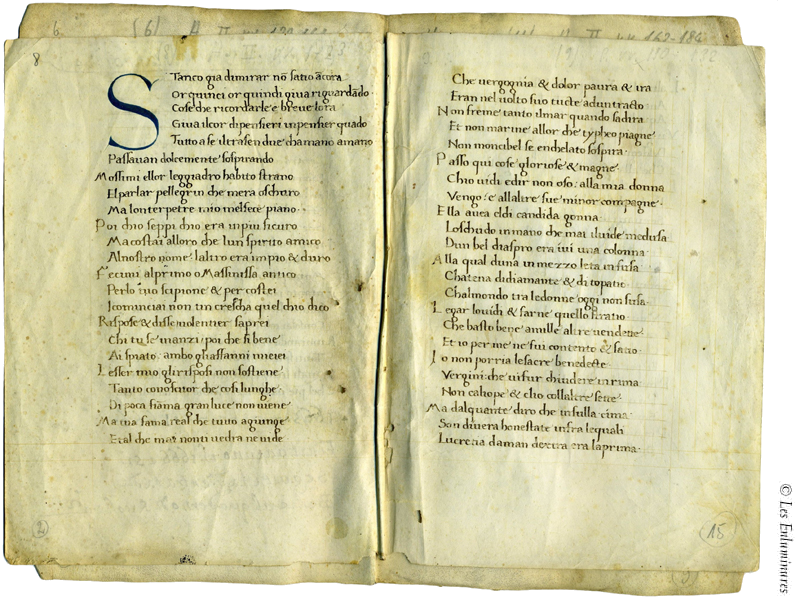 8
STanco gia dimirar nō satio ācora
Or quinci or quindi giua riguardādo
Cose che ricordarle e breue lora
Giua ilcor dipensieri inpensier quādo
Tutto a se iltrasen due chamano amano
Passauan dolcemente sospirando
Mossimi ellor leggiadro habito strano
Elparlar pellegrin che mera oschuro
Ma lonterpetre mio melfece piano
Poi chio seppi chi era inpiu sicuro
Ma costai alloro che lun spirito amico
Alnostro nome laltro era impio & duro
Fecimi alprimo o Massinissa antico
Perlo tuo scipione & per costei
Icominciai non tin crescha quel chio dico
Rispose & disse uolentier saprei
Chi tu se inanzi poi che si bene
Ai spiato ambo gliaffanni miei
Lesser mio gli risposi non sostiene
Tanto conoscitor che cosi lunghe
Di poca fiāma gran luce non uiene
Ma tua fama real che tutto agiunge
Et tal che mai non ti uedra ne uide
2
Che uergognia & dolor paura & ira
Eran nel uolto suo tucte aduntracto
Non freme tanto ilmar quando sadira
Et non marime allor che typheo piagne
Non moncibel se enchelato sospira
Passo qui cose gloriose & magne
Chio uidi edir non oso: alla mia donna
Vengo: e allaltre sue minor compagne
Ella auea eldi candida gonna
Loschudo inmano che mal iluide medusa
Dun bel diaspro era iui una colonna
Alla qual duna inmezzo leta infusa
Chatena didiamante & di topatio
Chalmondo tra ledonne oggi non susa
Legar louidi & farne quello stratio
Che basto bene amille altre uendette
Et io per me ne fui contento & satio
Io non porria lesacre benedecte
Vergini: che uifur chiudere inrima
Non caliope & clio collaltre sette
Ma dalquante diro che insulla cima
Son diuera honestate infra lequali
Lucretia daman dextra era laprima
15
© Les Enluminures